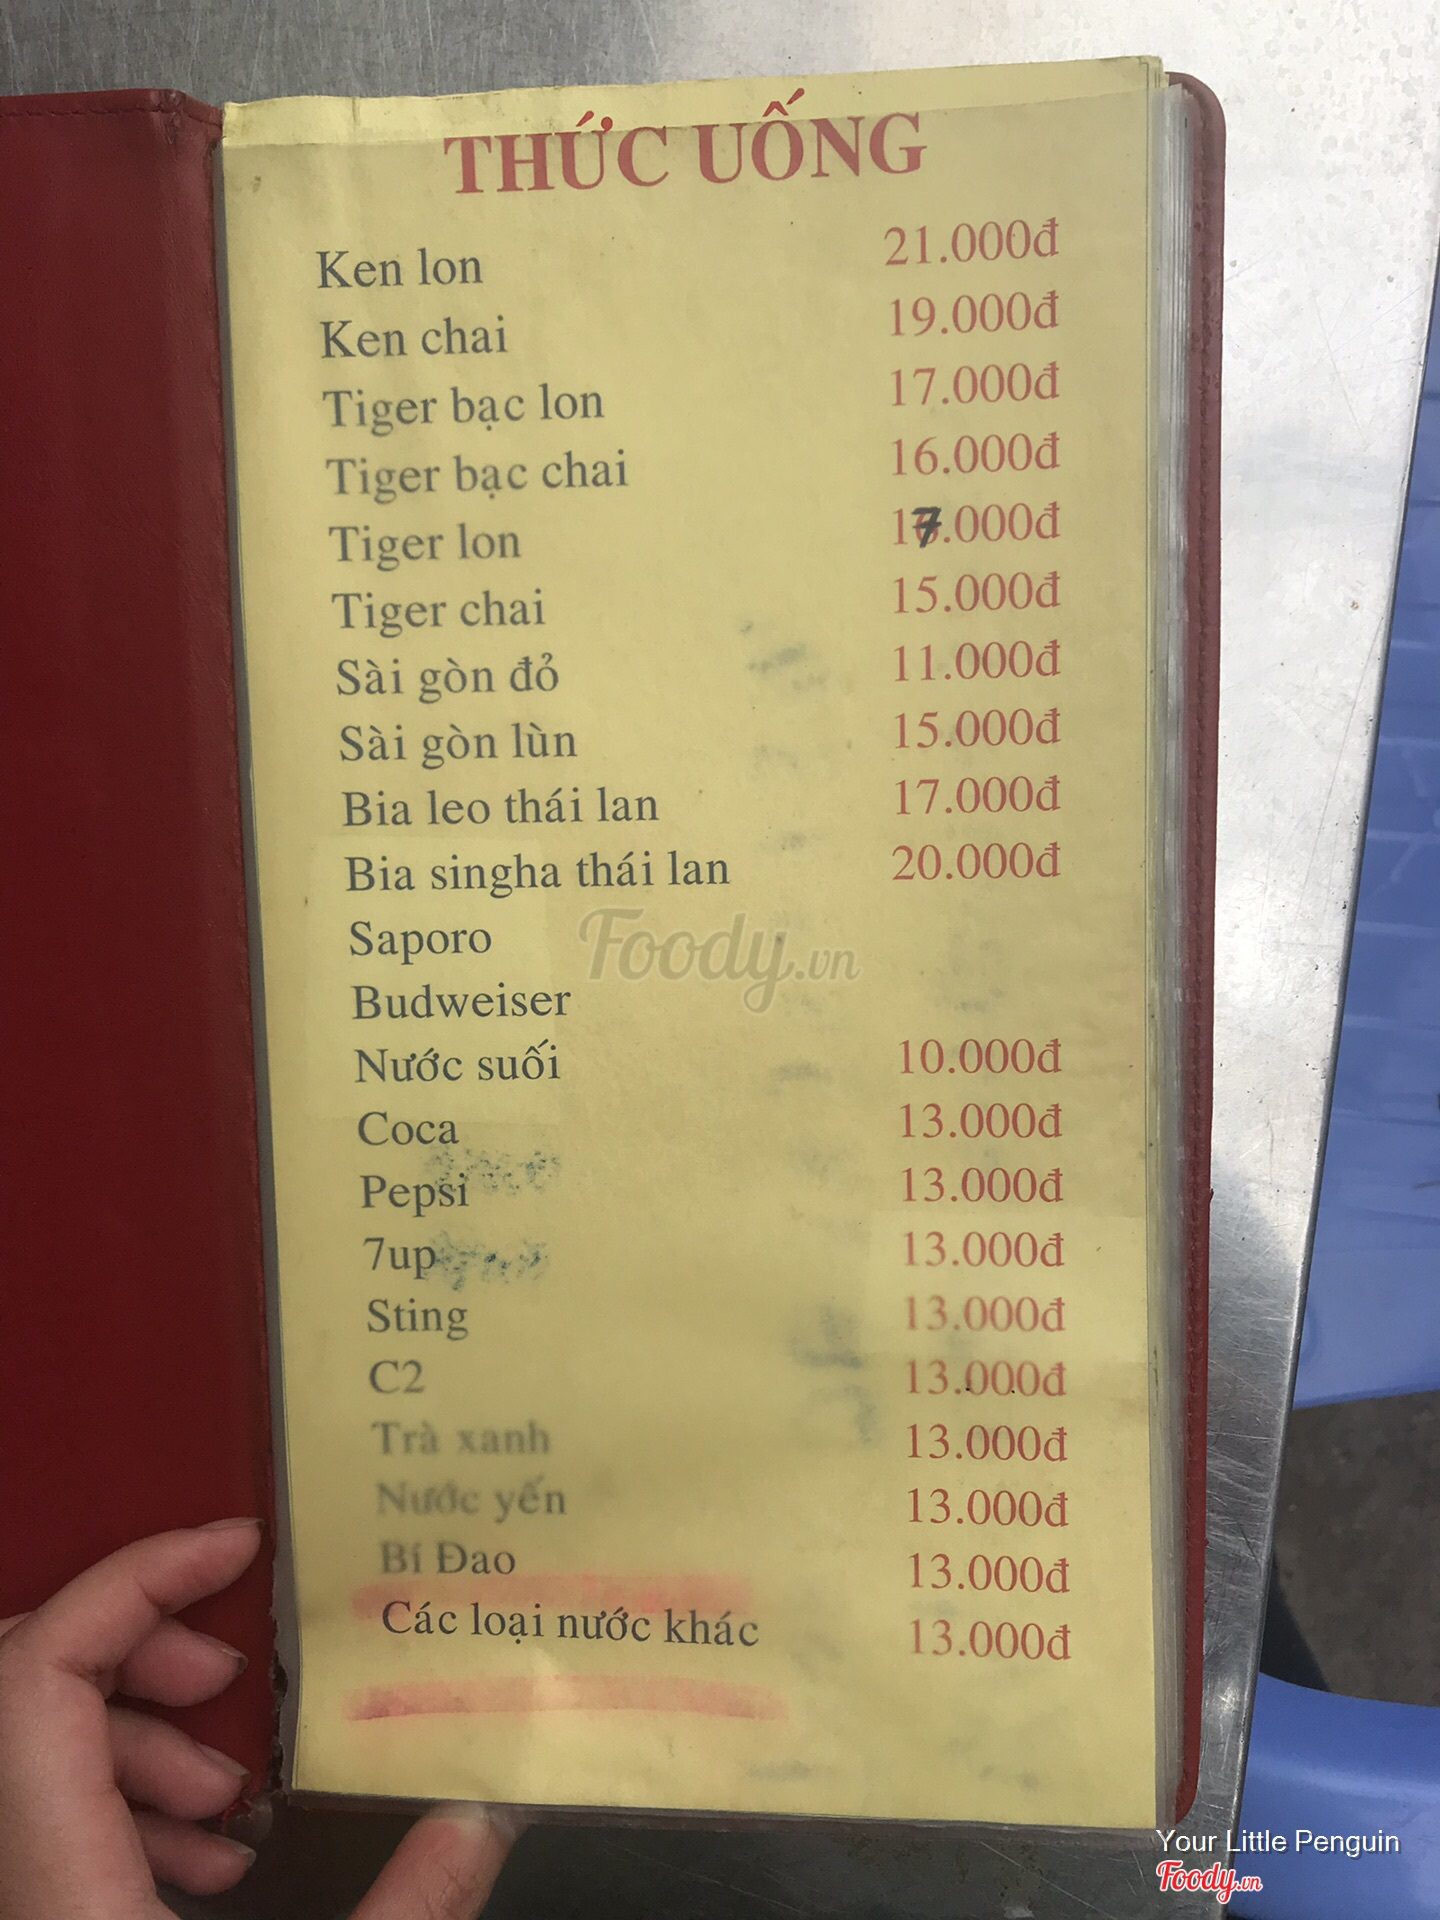 THỨC UỐNG
Ken lon 21.000đ
Ken chai 19.000đ
Tiger bạc lon 17.000đ
Tiger bạc chai 16.000đ
Tiger lon 17.000đ
Tiger chai 15.000đ
Sài gòn đỏ 11.000đ
Sài gòn lùn 15.000đ
Bia leo thái lan 17.000đ
Bia singha thái lan 20.000đ
Saporo
Foody.vn
Budweiser
Nước suối 10.000đ
Coca 13.000đ
Pepsi 13.000đ
7up 13.000đ
Sting 13.000đ
C2 13.000đ
Trà xanh 13.000đ
Nước yến 13.000đ
Bí Đao 13.000đ
Các loại nước khác 13.000đ
Your Little Penguin
Foody.vn